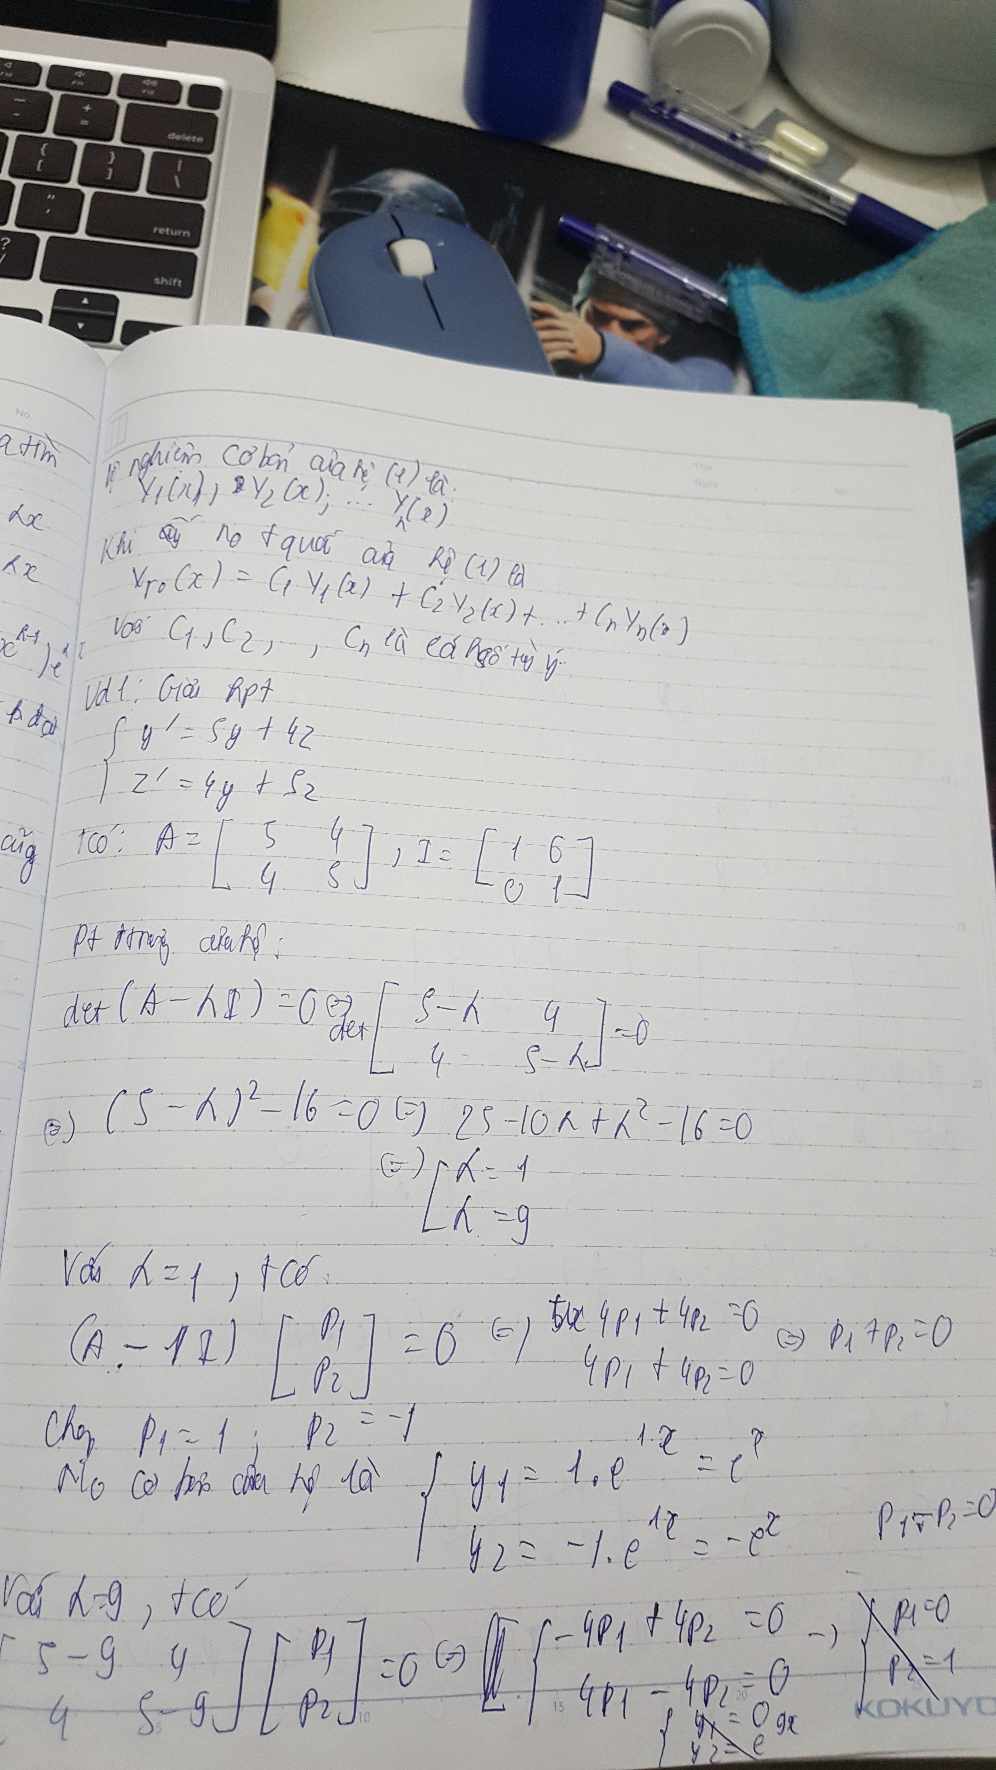 delete
return
shift
No.
a tìm
λx
λx
nghiệm cơ bản của hệ (1) là:
Y₁(x), Y₂(x); ... Yₙ(x)
Khi no tquát của hệ (1) là
Yᴛₒ(x) = C₁Y₁(x) + C₂Y₂(x) + ... + CₙYₙ(x)
Với C₁, C₂, , Cₙ là các hgsố tùy ý
Vd1: Giải hpt
{ y' = 5y + 4z
z' = 4y + 5z
cũg
tcó: A = [ 5 4
4 5 ], I = [ 1 0
0 1 ]
Pt đtrưng của hệ:
det (A - λI) = 0 (=) det [ 5-λ 4
4 5-λ ] = 0
(=) (5-λ)² - 16 = 0 (=) 25 - 10λ + λ² - 16 = 0
(=) [ λ = 1
λ = 9
Với λ = 1, tcó:
(A - 1I) [ P₁
P₂ ] = 0 (=) 4P₁ + 4P₂ = 0
4P₁ + 4P₂ = 0 (=) P₁ + P₂ = 0
Chọn P₁ = 1; P₂ = -1
No cơ bản của hệ là { y₁ = 1.e^1.x = e^x
y₂ = -1.e^1x = -e^x
P₁ - P₂ = 0
Với λ = 9, tcó
[ 5-9 4
4 5-9 ] [ P₁
P₂ ] = 0 (=) { -4P₁ + 4P₂ = 0
4P₁ - 4P₂ = 0
→ { P₁ = 0
P₂ = 1
{ y₁ = 0
y₂ = e^9x
KOKUYO